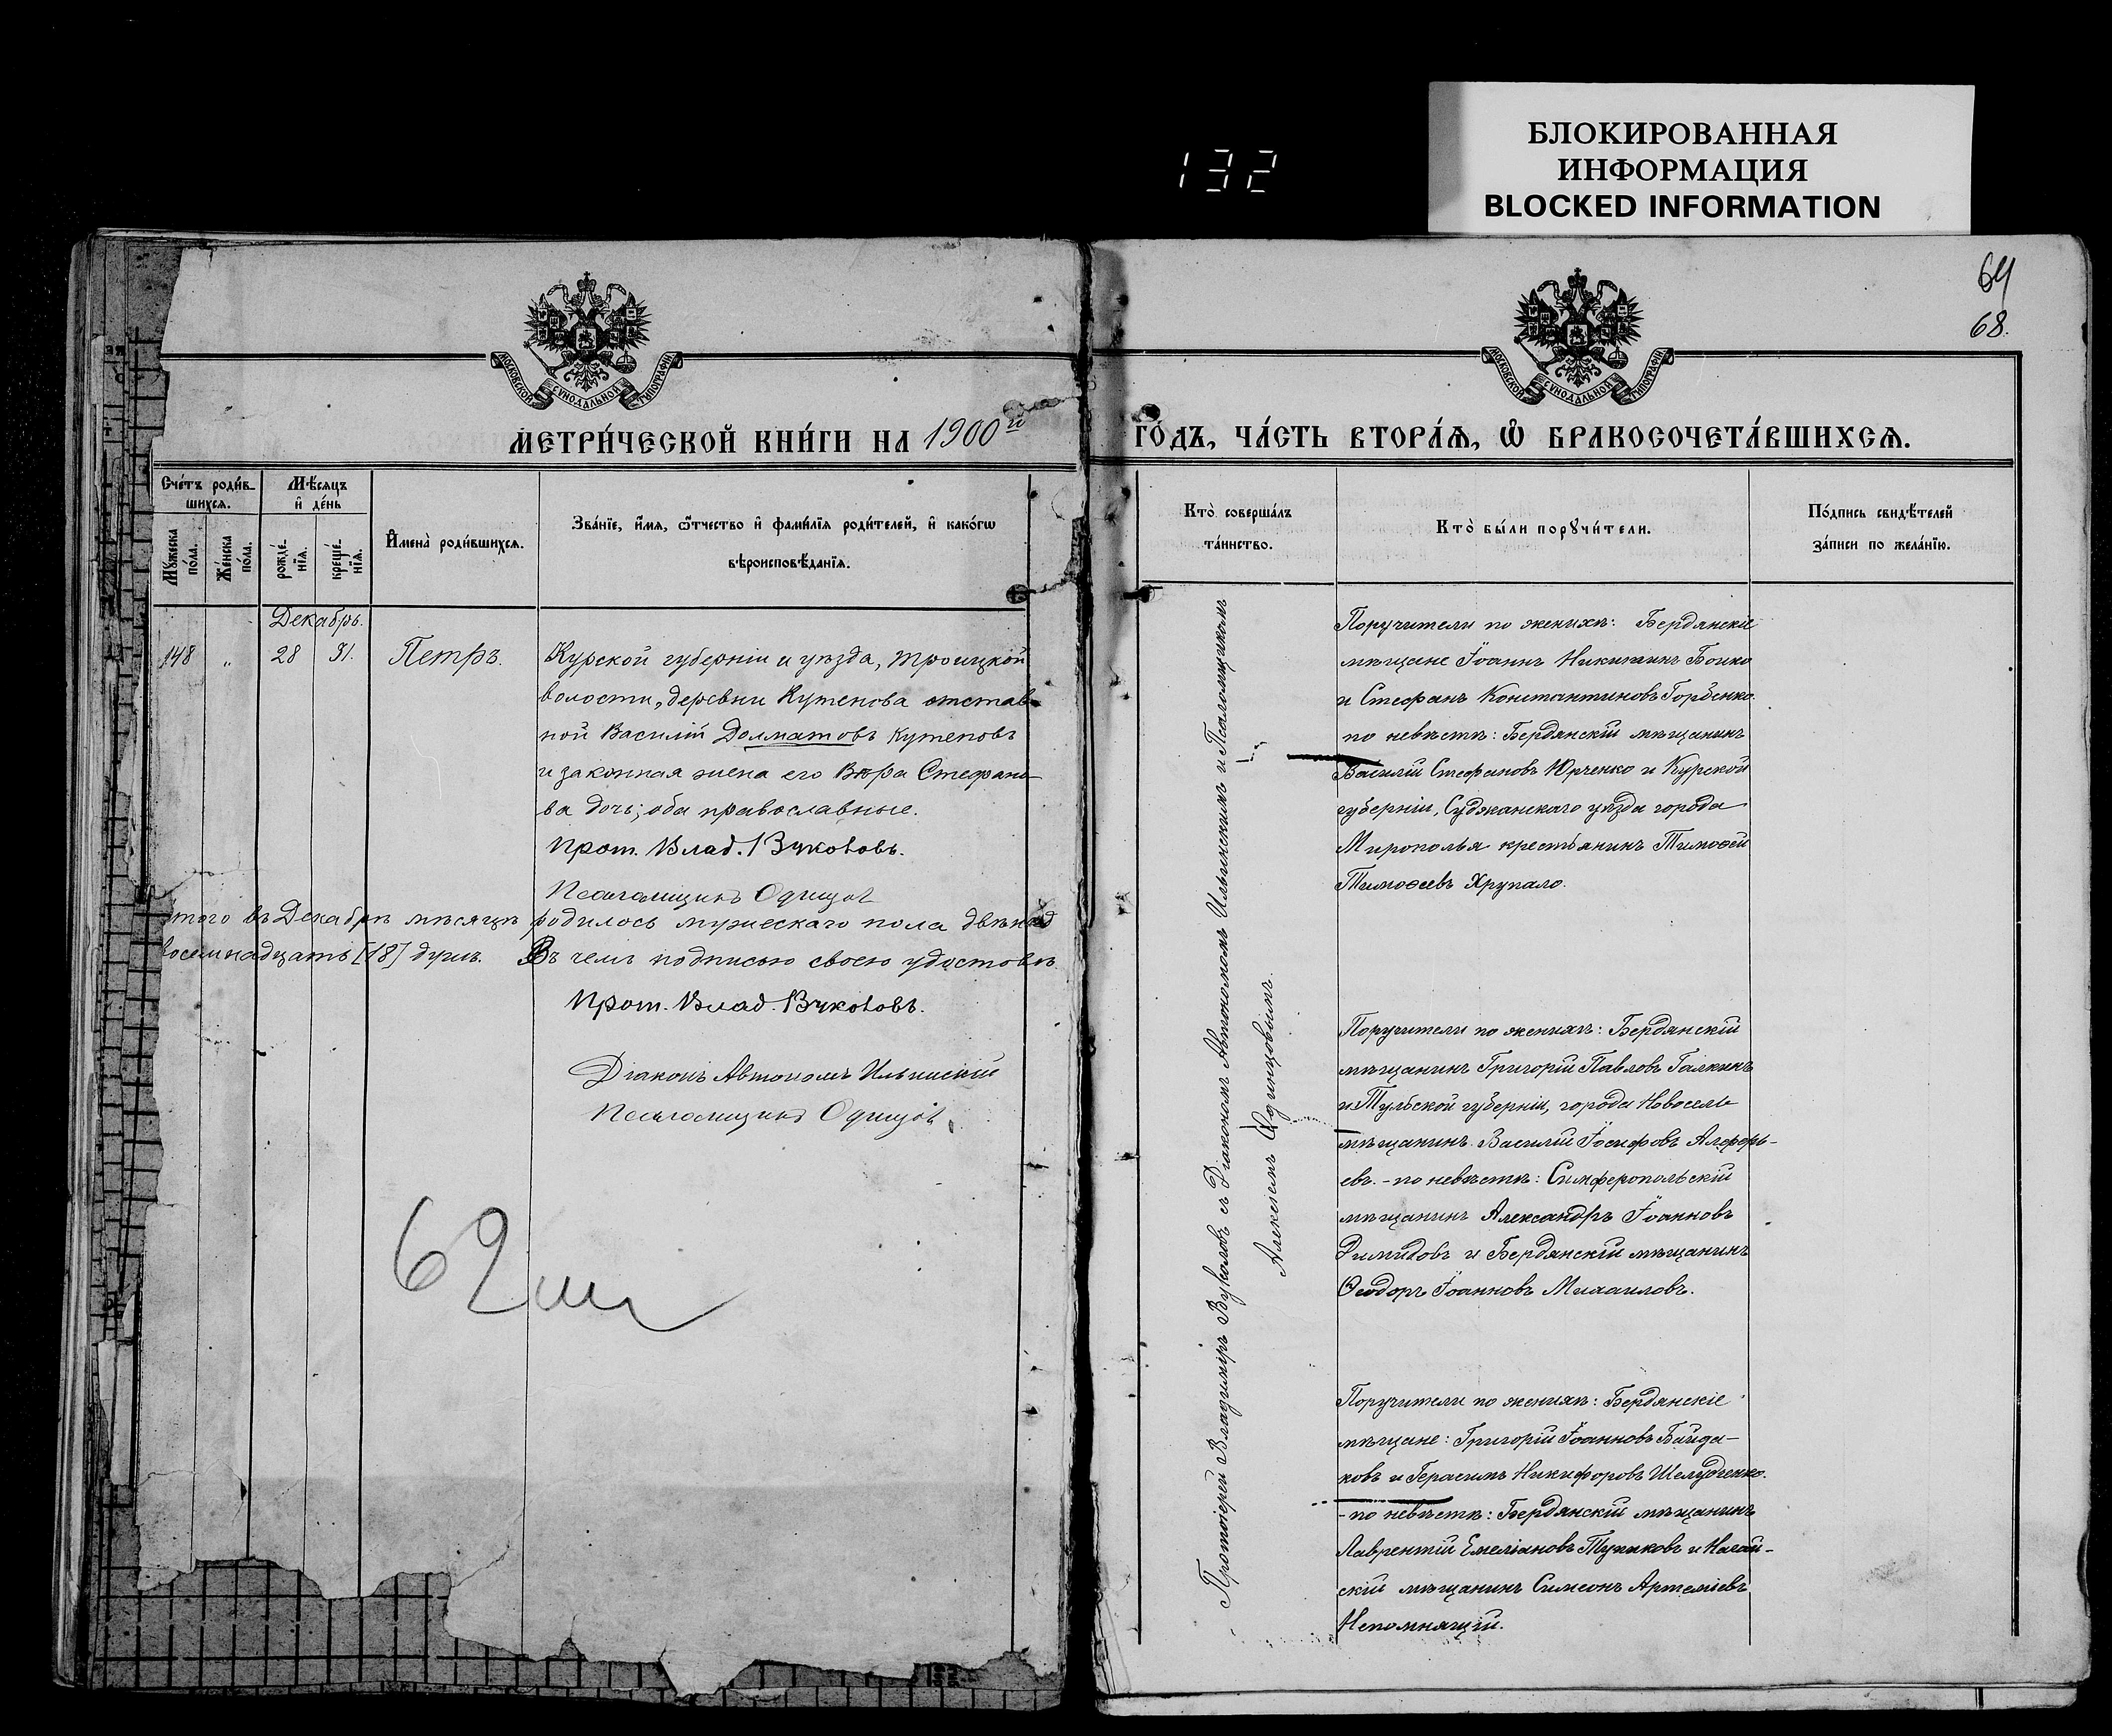 132
БЛОКИРОВАННАЯ
ИНФОРМАЦИЯ
BLOCKED INFORMATION
МОСКОВСКОЙ СѴНОДАЛЬНОЙ ТИПОГРАФІИ
МЕТРИ́ЧЕСКОЙ КНИ́ГИ НА 1900й
Сче́тъ роди́в-
шихсѧ.
Мѣ́сѧцъ
и҆ де́нь
Мꙋ́жеска по́ла.
Же́нска по́ла.
рожде́-нїѧ.
креще́-нїѧ.
И҆мена̀ роди́вшихсѧ.
Зва́нїе, и҆́мѧ, ѻ҆́тчество и҆ фами́лїѧ роди́телей, и҆ како́гѡ
вѣроисповѣ́данїѧ.
Декабрь.
148 " 28 31. Петръ.
Курской губерніи и уѣзда, Троицкой
волости, деревни Кутепова отстав-
ной Василій Долматовъ Кутеповъ
и законная жена его Вѣра Стефано-
ва дочь; оба православные.
Прот. Влад. Вуколовъ.
Псаломщикъ Одинцовъ
этого въ Декабрѣ мѣсяцѣ родилось мужескаго пола двѣнад
восемнадцать [18] душъ. Въ чемъ подписью своею удостовѣ
Прот. Влад. Вуколовъ.
Діаконъ Автономъ Ильинскій
Псаломщикъ Одинцовъ
69
64
68.
МОСКОВСКОЙ СѴНОДАЛЬНОЙ ТИПОГРАФІИ
ГО́ДЪ, ЧА́СТЬ ВТОРА́Ѧ, Ѽ БРАКОСОЧЕТА́ВШИХСѦ.
Кто̀ соверша́лъ
та́инство.
Кто̀ бы́ли порꙋчи́тели.
По́дпись свидѣ́телей
за́писи по жела́нїю.
Протоіерей Владиміръ Вуколовъ съ Діакономъ Автономомъ Ильинскимъ и Псаломщикомъ
Алексіемъ Одинцовымъ.
Поручители по женихѣ: Бердянскіе
мѣщане Іоаннъ Никитинъ Бойко
и Стефанъ Константиновъ Горбенко.
по невѣстѣ: Бердянскій мѣщанинъ
Василій Стефановъ Юрченко и Курской
губерніи, Суджанскаго уѣзда города
Мирополья крестьянинъ Тимоѳей
Тимоѳеевъ Хрупало.
Поручители по женихѣ: Бердянскій
мѣщанинъ Григорій Павловъ Галкинъ
и Тульской губерніи, города Новосиль
мѣщанинъ Василій Іосифовъ Алферь-
евъ. - по невѣстѣ: Симферопольскій
мѣщанинъ Александръ Іоанновъ
и Бердянскій мѣщанинъ
Ѳеодоръ Іоанновъ Михаиловъ.
Поручители по женихѣ: Бердянскіе
мѣщане: Григорій Іоанновъ Байда-
ковъ и Герасимъ Никифоровъ Шелудченко.
- по невѣстѣ: Бердянскій мѣщанинъ
Лаврентій Емеліановъ и Ногай-
скій мѣщанинъ Симеонъ Артеміевъ
Непомнящій.